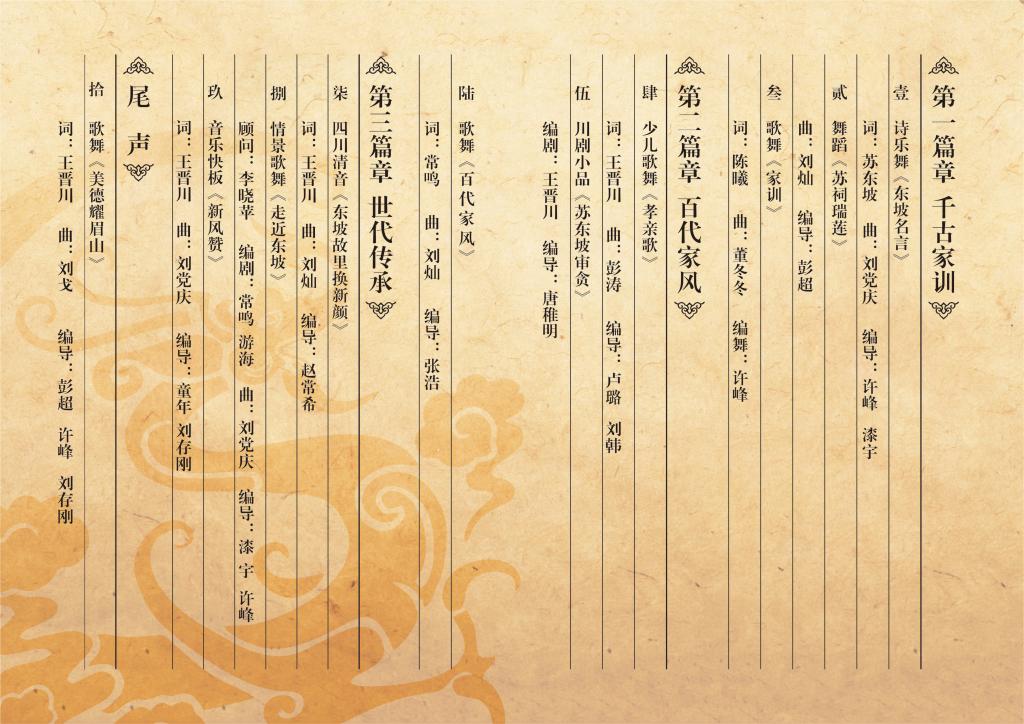 第一篇章 千古家训
壹 诗乐舞《东坡名言》
词：苏东坡 曲：刘党庆 编导：许峰 漆宇
贰 舞蹈《苏祠瑞莲》
曲：刘灿 编导：彭超
叁 歌舞《家训》
词：陈曦 曲：董冬冬 编舞：许峰
第二篇章 百代家风
肆 少儿歌舞《孝亲歌》
词：王晋川 曲：彭涛 编导：卢璐 刘韩
伍 川剧小品《苏东坡审贪》
编剧：王晋川 编导：唐稚明
陆 歌舞《百代家风》
词：常鸣 曲：刘灿 编导：张浩
第三篇章 世代传承
柒 四川清音《东坡故里换新颜》
词：王晋川 曲：刘灿 编导：赵常希
捌 情景歌舞《走近东坡》
顾问：李晓苹 编剧：常鸣 游海 曲：刘党庆 编导：漆宇 许峰
玖 音乐快板《新风赞》
词：王晋川 曲：刘党庆 编导：童年 刘存刚
尾声
拾 歌舞《美德耀眉山》
词：王晋川 曲：刘戈 编导：彭超 许峰 刘存刚